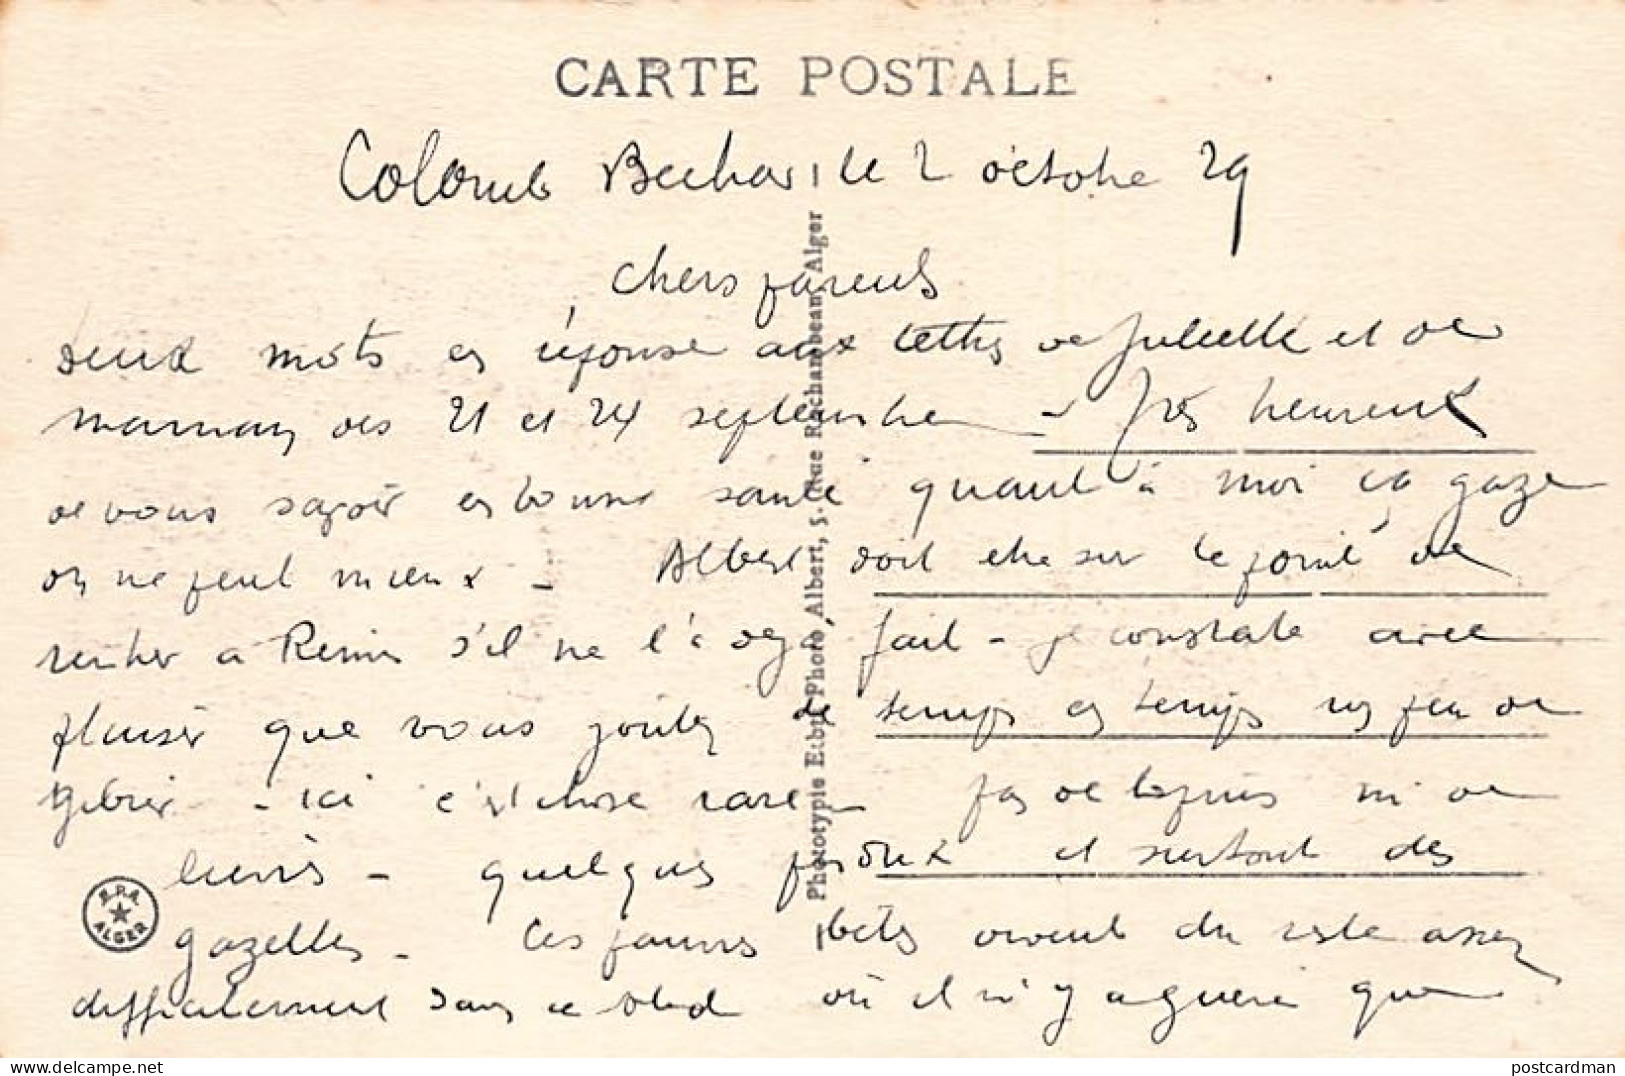 CARTE POSTALE
Colomb Bechar le 2 octobre 29
Chers parents
deux mots en réponse aux lettres de Juliette et de
maman des 21 et 24 septembre - Très heureux
de vous savoir en bonne santé quant à moi ça gaze
on ne peut mieux - Albert doit être sur le point de
rentrer à Reims s'il ne l'a déjà fait - je constate avec
plaisir que vous goûtez de temps en temps un peu de
gibier - Ici c'est chose rare pas de lapins ni de
lièvres - quelques perdrix et surtout des
gazelles - Ces pauvres bêtes vivent du reste assez
difficilement dans ce bled où il n'y a guère que
Phototypie Etbts Photo Albert, 5, Rue Rochambeau, Alger
E.P.A. ALGER
postcardman